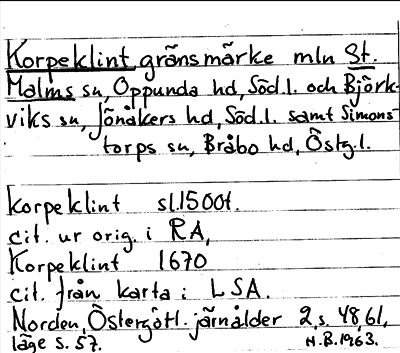 Korpeklint gränsmärke mln St.
Malms sn, Oppunda hd, Södl. och Björk-
viks sn, Jönåkers hd, Södl. samt Simons-
torps sn, Bråbo hd, Östg.l.
Korpeklint sl.1500t.
cit. ur orig. i RA,
Korpeklint 1670
cit. från karta i LSA.
Norden, Östergötl. järnålder 2, s. 48, 61,
läge s. 57. N.B. 1963.